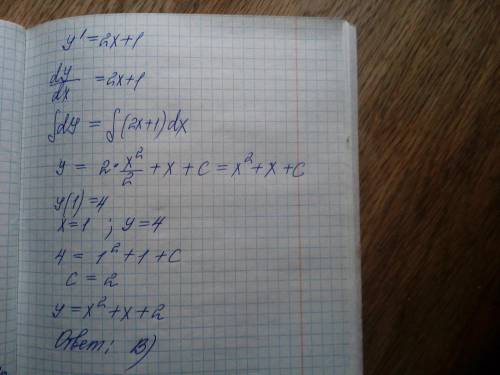 y' = 2x+1
dy/dx = 2x+1
∫dy = ∫(2x+1)dx
y = 2·x²/2 + x + C = x² + x + C
y(1) = 4
x=1 ; y=4
4 = 1² + 1 + C
C = 2
y = x² + x + 2
Ответ: В)